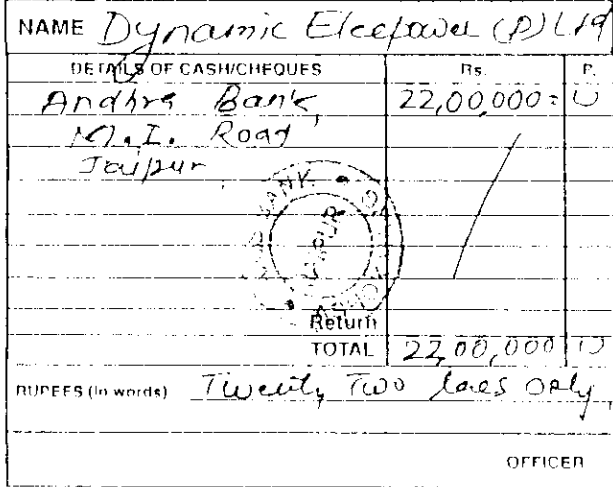 NAME Dynamic Elcepower (P) Ltd
DETAILS OF CASH/CHEQUES Rs. P.
Andhra Bank, 22,00,000=
M.I. Road
Jaipur
BANK JAIPUR
Return
TOTAL 22,00,000
RUPEES (in words) Twenty Two lacs Only
OFFICER